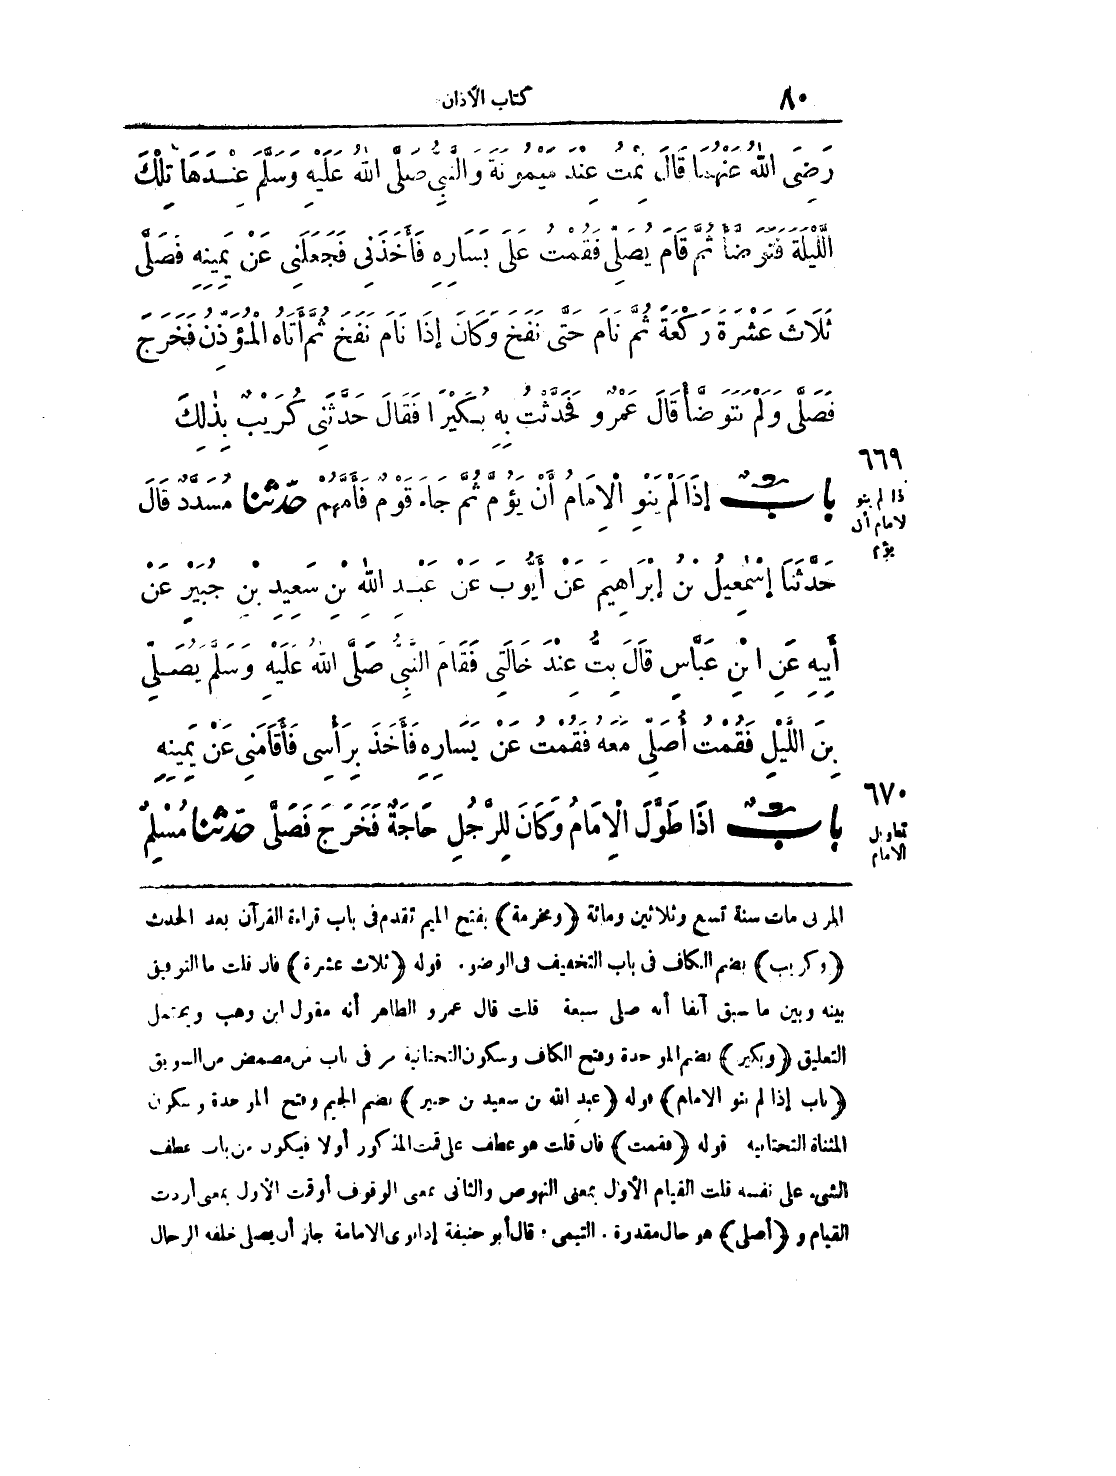 ٨٠ كتاب الأذان
رَضِىَ اللهُ عَنْهُمَا قَالَ نِمْتُ عِنْدَ مَيْمُونَةَ وَالنَّبِىُّ صَلَّى اللهُ عَلَيْهِ وَسَلَّمَ عِنْدَهَا تِلْكَ
اللَّيْلَةَ فَتَوَضَّأَ ثُمَّ قَامَ يُصَلِّى فَقُمْتُ عَلَى يَسَارِهِ فَأَخَذَنِى فَجَعَلَنِى عَنْ يَمِينِهِ فَصَلَّى
ثَلَاثَ عَشْرَةَ رَكْعَةً ثُمَّ نَامَ حَتَّى نَفَخَ وَكَانَ إِذَا نَامَ نَفَخَ ثُمَّ أَتَاهُ الْمُؤَذِّنُ فَخَرَجَ
فَصَلَّى وَلَمْ يَتَوَضَّأْ قَالَ عَمْرٌو فَحَدَّثْتُ بِهِ بُكَيْرًا فَقَالَ حَدَّثَنِى كُرَيْبٌ بِذٰلِكَ
٦٦٩
ذا لم ينو
لامام أن
يؤم
بابٌ إِذَا لَمْ يَنْوِ الْإِمَامُ أَنْ يَؤُمَّ ثُمَّ جَاءَ قَوْمٌ فَأَمَّهُمْ حدّثنا مُسَدَّدٌ قَالَ
حَدَّثَنَا إِسْمٰعِيلُ بْنُ إِبْرَاهِيمَ عَنْ أَيُّوبَ عَنْ عَبْدِ اللهِ بْنِ سَعِيدِ بْنِ جُبَيْرٍ عَنْ
أَبِيهِ عَنِ ابْنِ عَبَّاسٍ قَالَ بِتُّ عِنْدَ خَالَتِى فَقَامَ النَّبِىُّ صَلَّى اللهُ عَلَيْهِ وَسَلَّمَ يُصَلِّى
مِنَ اللَّيْلِ فَقُمْتُ أُصَلِّى مَعَهُ فَقُمْتُ عَنْ يَسَارِهِ فَأَخَذَ بِرَأْسِى فَأَقَامَنِى عَنْ يَمِينِهِ
٦٧٠
تطويل
الامام
بابٌ اذَا طَوَّلَ الْإِمَامُ وَكَانَ لِلرَّجُلِ حَاجَةٌ فَخَرَجَ فَصَلَّى حدّثنا مُسْلِمٌ
المدنى مات سنة تسع وثلاثين ومائة (ومخرمة) بفتح الميم تقدم فى باب قراءة القرآن بعد الحدث
(وكريب) بضم الكاف فى باب التخفيف فى الوضوء. قوله (ثلاث عشرة) فان قلت ما التوفيق
بينه وبين ما سبق آنفا أنه صلى سبعة قلت قال عمرو الظاهر أنه مقول ابن وهب ويحتمل
التعليق (وبكير) بضم الموحدة وفتح الكاف وسكون التحتانية مر فى باب من مضمض من السويق
(باب إذا لم ينو الامام) قوله (عبد الله بن سعيد بن جبير) بضم الجيم وفتح الموحدة وسكون
المثناة التحتانية قوله (فقمت) فان قلت هو عطف على قمت المذكور أولا فيكون من باب عطف
الشىء على نفسه قلت القيام الأول بمعنى النهوض والثانى بمعنى الوقوف أو قمت الأول بمعنى أردت
القيام و (أصلى) هو حال مقدرة. التيمى: قال أبو حنيفة إذا نوى الامامة جاز أن يصلى خلفه الرجال